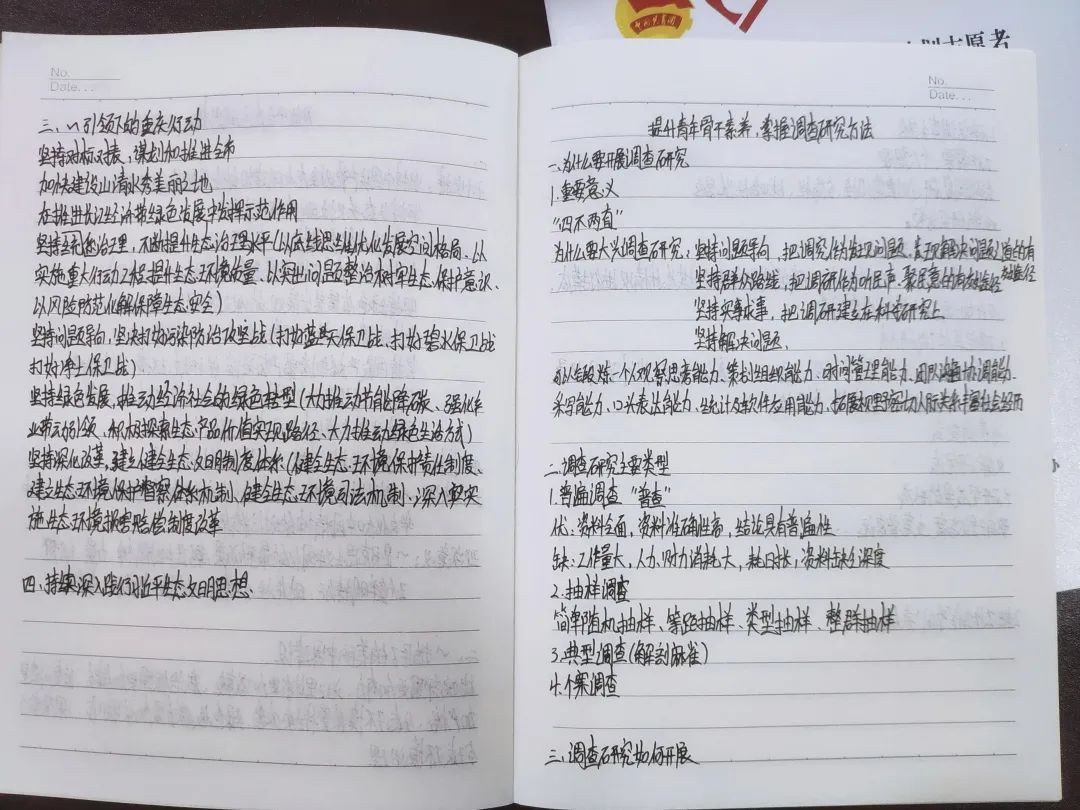 No.
Date...
三、〃引领下的重庆行动
坚持对标对表，谋划和推进全市
加快建设山清水秀美丽之地
在推进长江经济带绿色发展中发挥示范作用
坚持系统治理，不断提升生态治理水平（以底线思维优化发展空间格局、以
实施重大行动工程提升生态环境质量、以突出问题整治树牢生态保护意识、
以风险防范化解保障生态安全）
坚持问题导向，坚决打好污染防治攻坚战（打好蓝天保卫战、打好碧水保卫战
打好净土保卫战）
坚持绿色发展，推动经济社会的绿色转型（大力推动节能降碳、强化
业带动引领、积极探索生态产品价值实现路径、大力推动绿色生活方式）
坚持深化改革，建立健全生态文明制度体系（健全生态环境保护责任制度、
建立生态环境保护督察体系机制、健全生态环境司法机制、深入
施生态环境损害赔偿制度改革
四、持续深入践行习近平生态文明思想
中国共青团
志愿者
No.
Date...
提升青年骨干素养，掌握调查研究方法
一、为什么要开展调查研究
1.重要意义
“四不两直”
为什么要大兴调查研究：坚持问题导向，把调研作为发现问题、解决问题的有
效途径
坚持群众路线，把调研作为听民声、聚民意的有效途径
坚持实事求事，把调研建立在科学研究上
坚持解决问题、
可以全段炼一个人观察思考能力、策划组织能力、时间管理能力、团队沟通协调能力、
采写能力、口头表达能力、统计及软件应用能力、拓展视野
二、调查研究主要类型
1.普遍调查 “普查”
优：资料全面，资料准确性高，结论具有普遍性
缺：工作量大，人力、财力消耗大，耗日长，资料缺乏深度
2.抽样调查
简单随机抽样、等距抽样、类型抽样、整群抽样
3.典型调查（解剖麻雀）
4.个案调查
三、调查研究如何开展